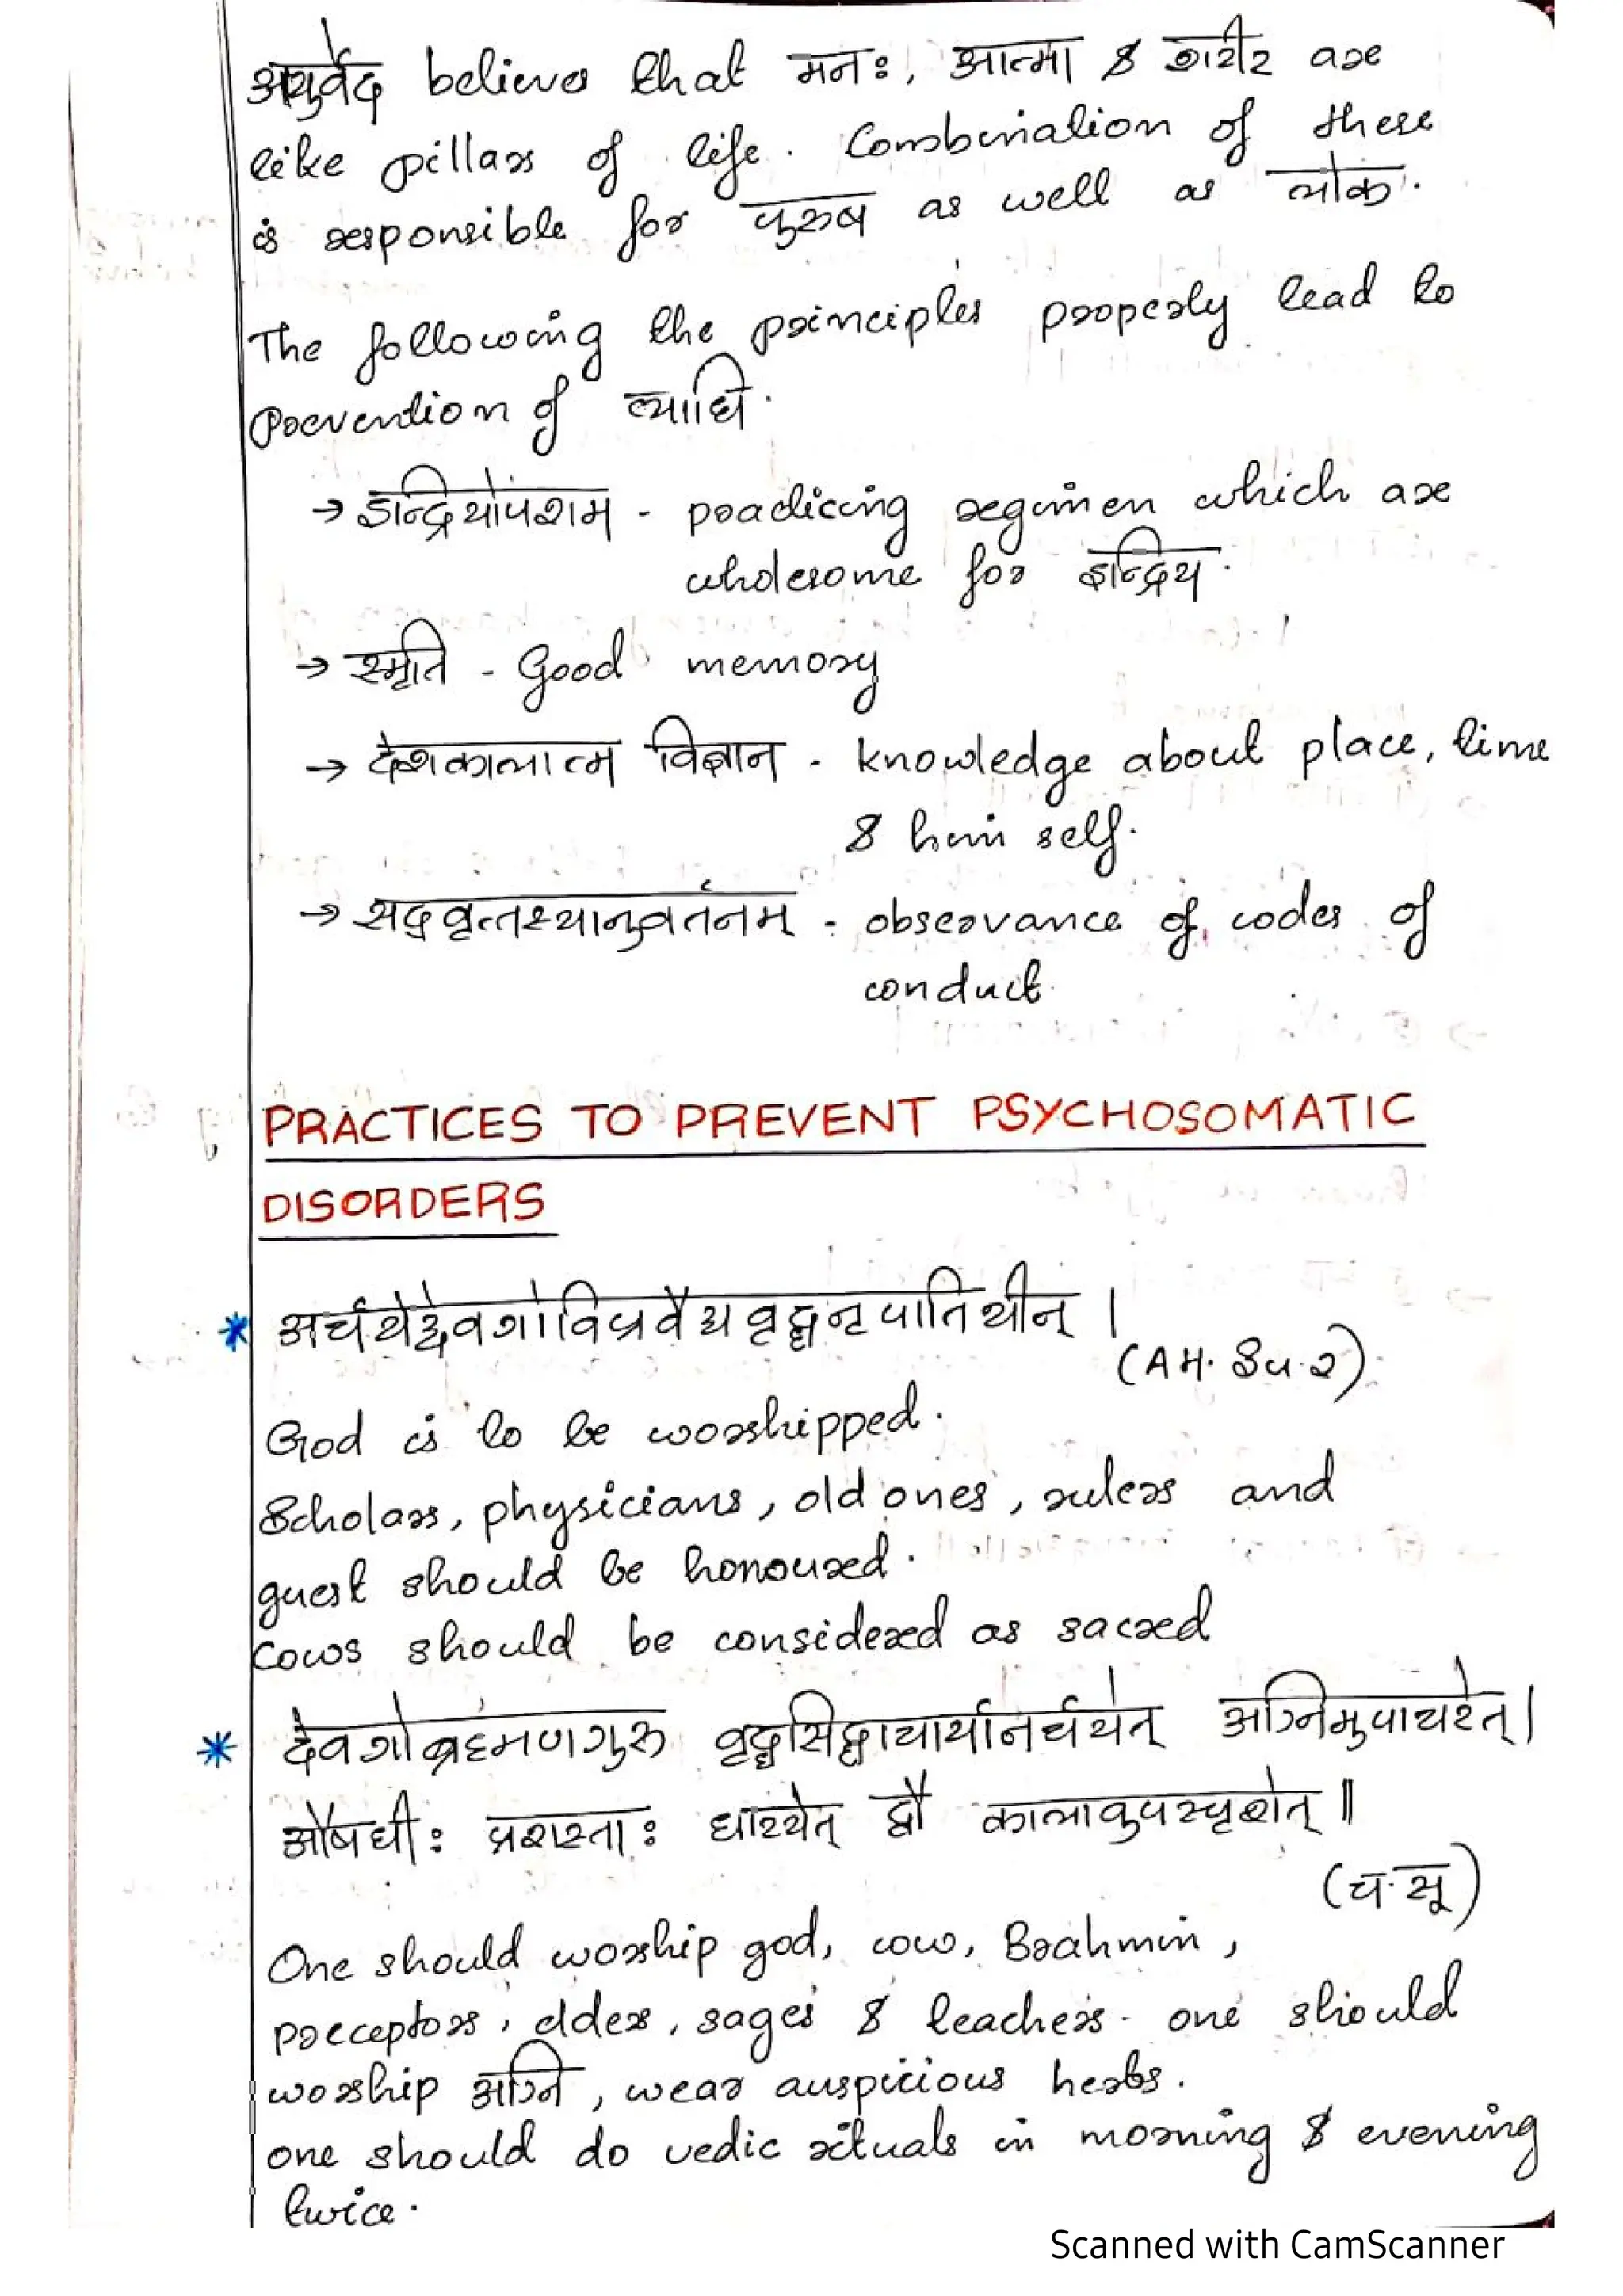 आयुर्वेद believes that मनः, आत्मा & शरीर are
like pillars of life. Combination of these
is responsible for पुरुष as well as लोक.
The following the principles properly lead to
Prevention of व्याधि.
→ इन्द्रियोपशम - practicing regimen which are
wholesome for इन्द्रिय.
→ स्मृति - Good memory
→ देशकालात्म विज्ञान - knowledge about place, time
& him self.
→ सद्वृत्तस्यानुवर्तनम् - observance of codes of
conduct
PRACTICES TO PREVENT PSYCHOSOMATIC
DISORDERS
* अर्चयेद्देवगोविप्रवैद्यवृद्धनृपातिथीन् |
(AH. Su. 2)
God is to be worshipped.
Scholars, physicians, old ones, rulers and
guest should be honoured.
Cows should be considered as sacred
* देवगोब्रह्मणगुरु वृद्धसिद्धाचार्यानर्चयेत् अग्निमुपाचरेत् |
औषधीः प्रशस्ताः धारयेत् द्वौ कालावुपस्पृशेत् ||
(च. सू)
One should worship god, cow, Brahmin,
preceptors, elders, sages & teachers. one should
worship अग्नि, wear auspicious herbs.
one should do vedic rituals in morning & evening
twice.
Scanned with CamScanner